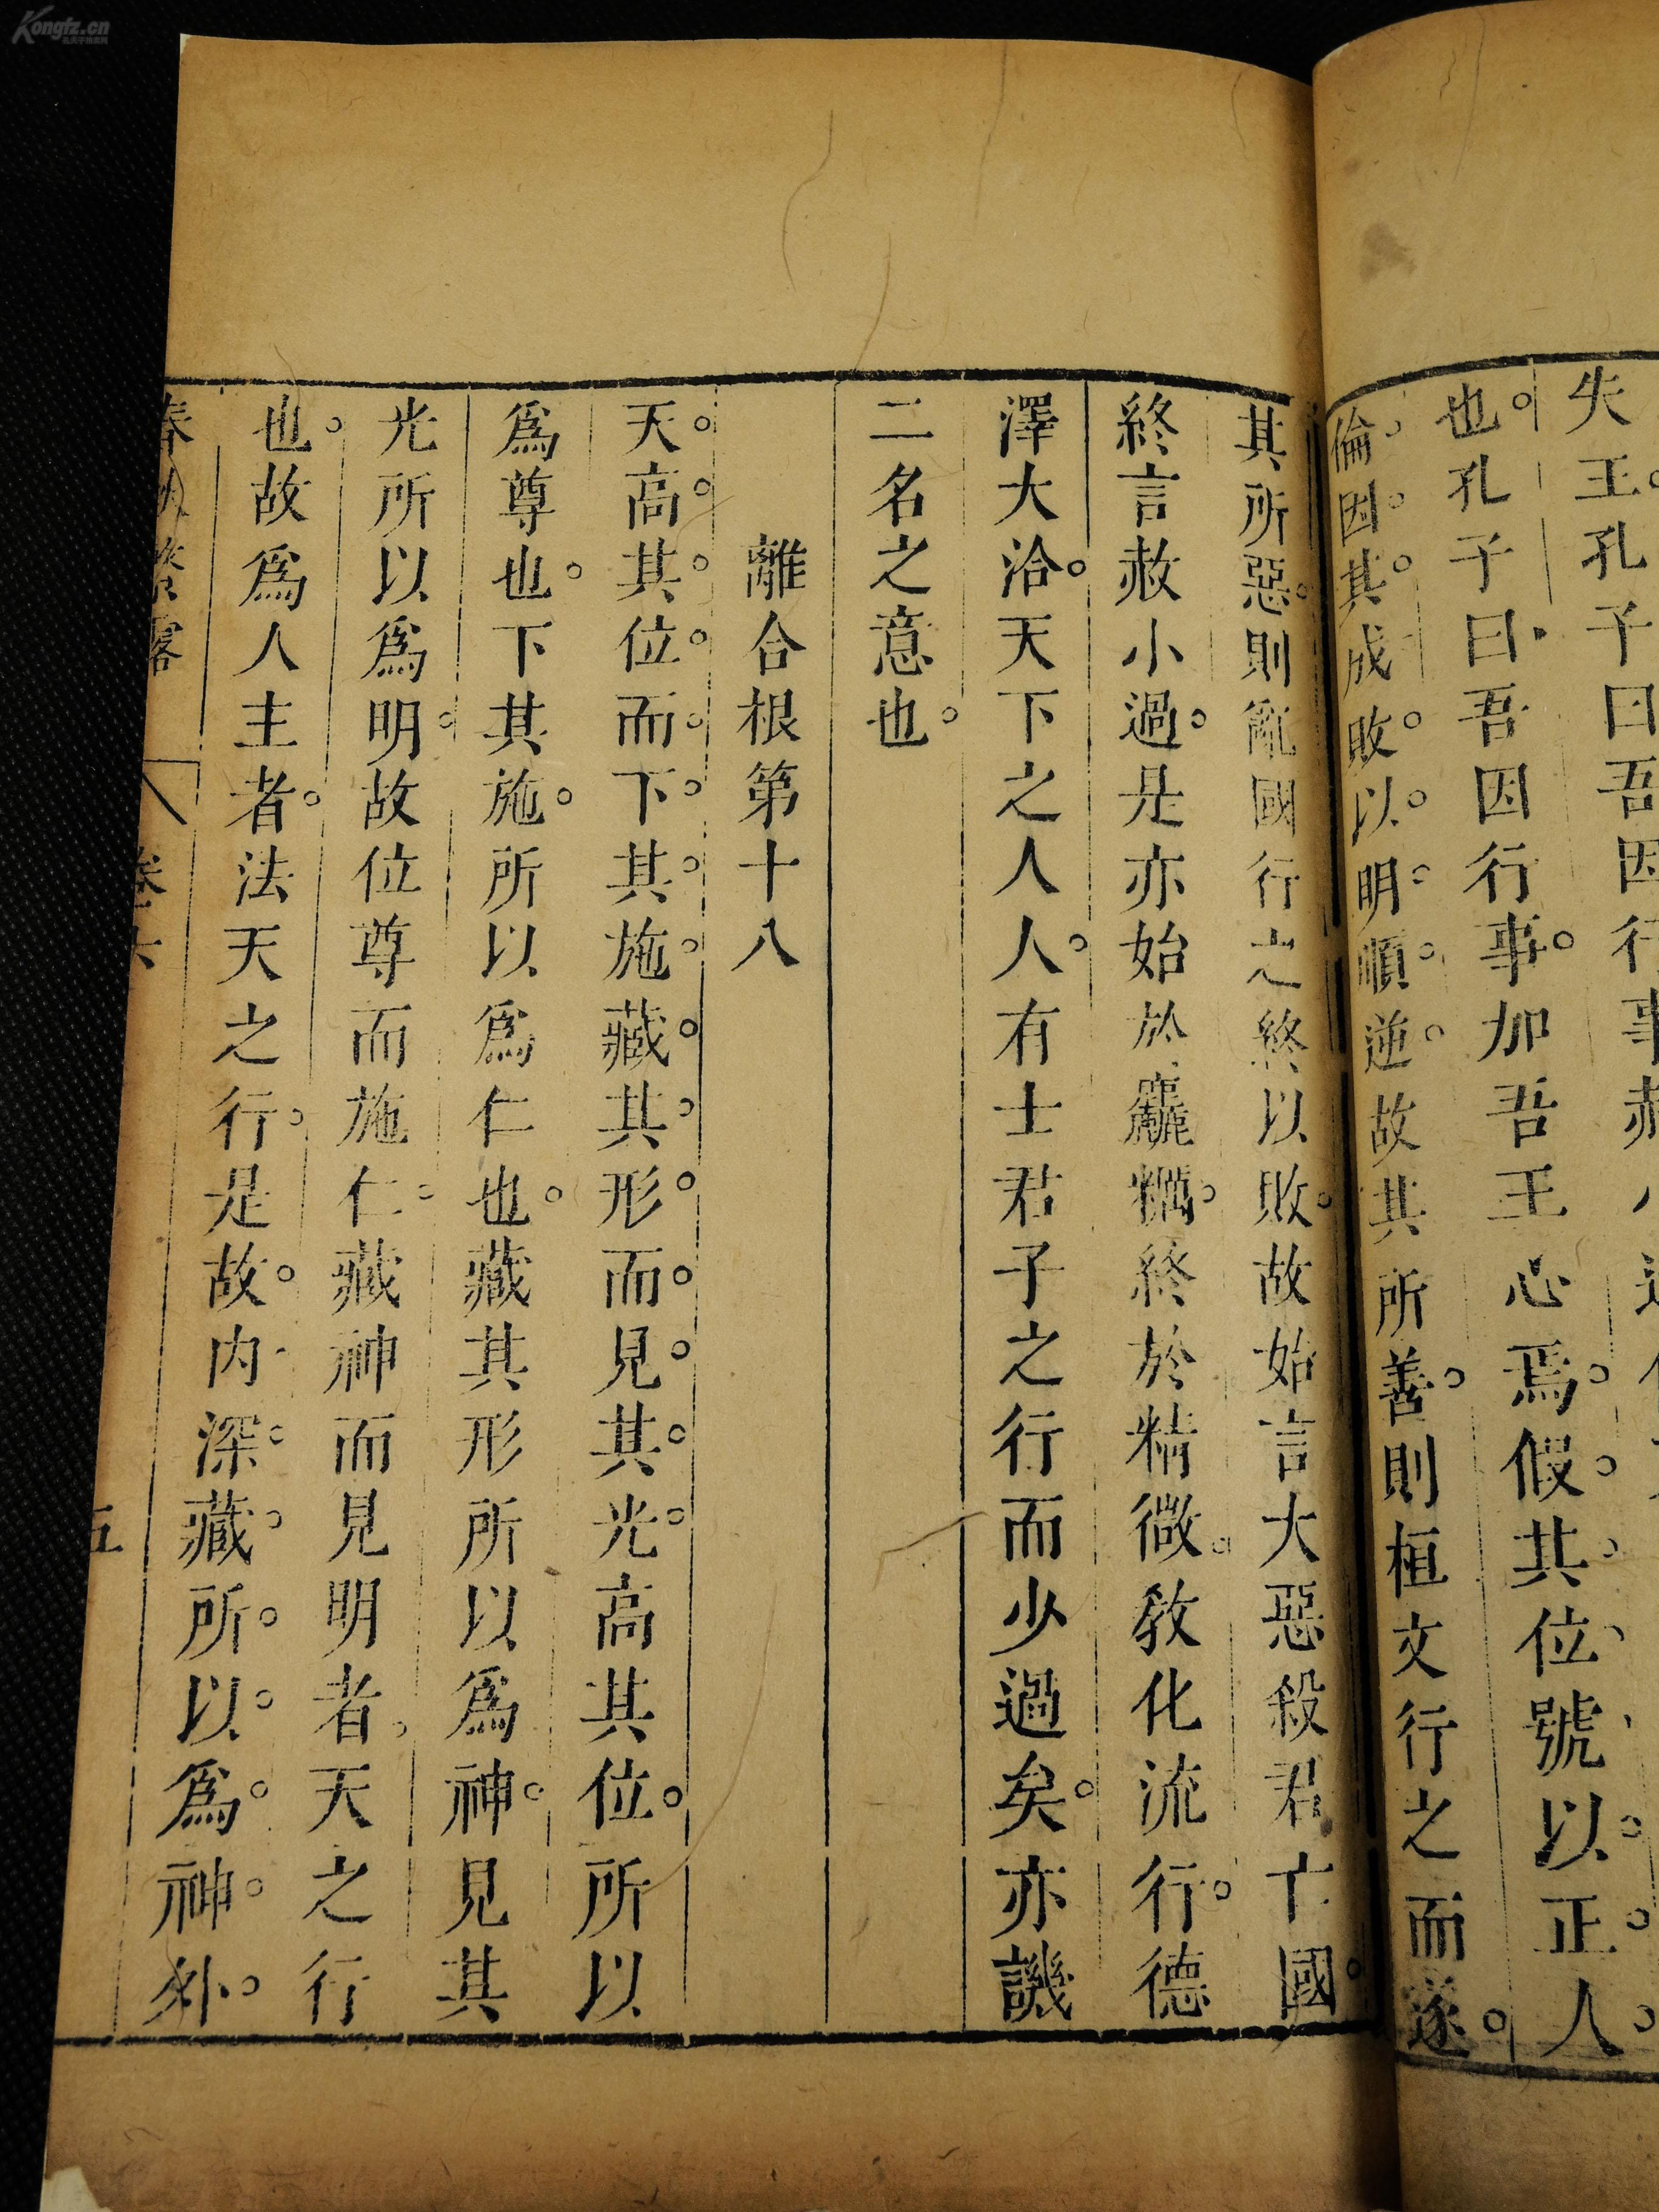 失王孔子曰吾因行事
也孔子曰吾因行事加吾王心焉假其位號以正人
倫因其成敗以明順逆故其所善則桓文行之而遂
其所惡則亂國行之終以敗故始言大惡殺君亡國
終言赦小過是亦始於麤糲終於精微教化流行德
澤大洽天下之人人有士君子之行而少過矣亦譏
二名之意也
離合根第十八
天高其位而下其施藏其形而見其光高其位所以
爲尊也下其施所以爲仁也藏其形所以爲神見其
光所以爲明故位尊而施仁藏神而見明者天之行
也故爲人主者法天之行是故內深藏所以爲神外
卷六
五
Kongfz.cn